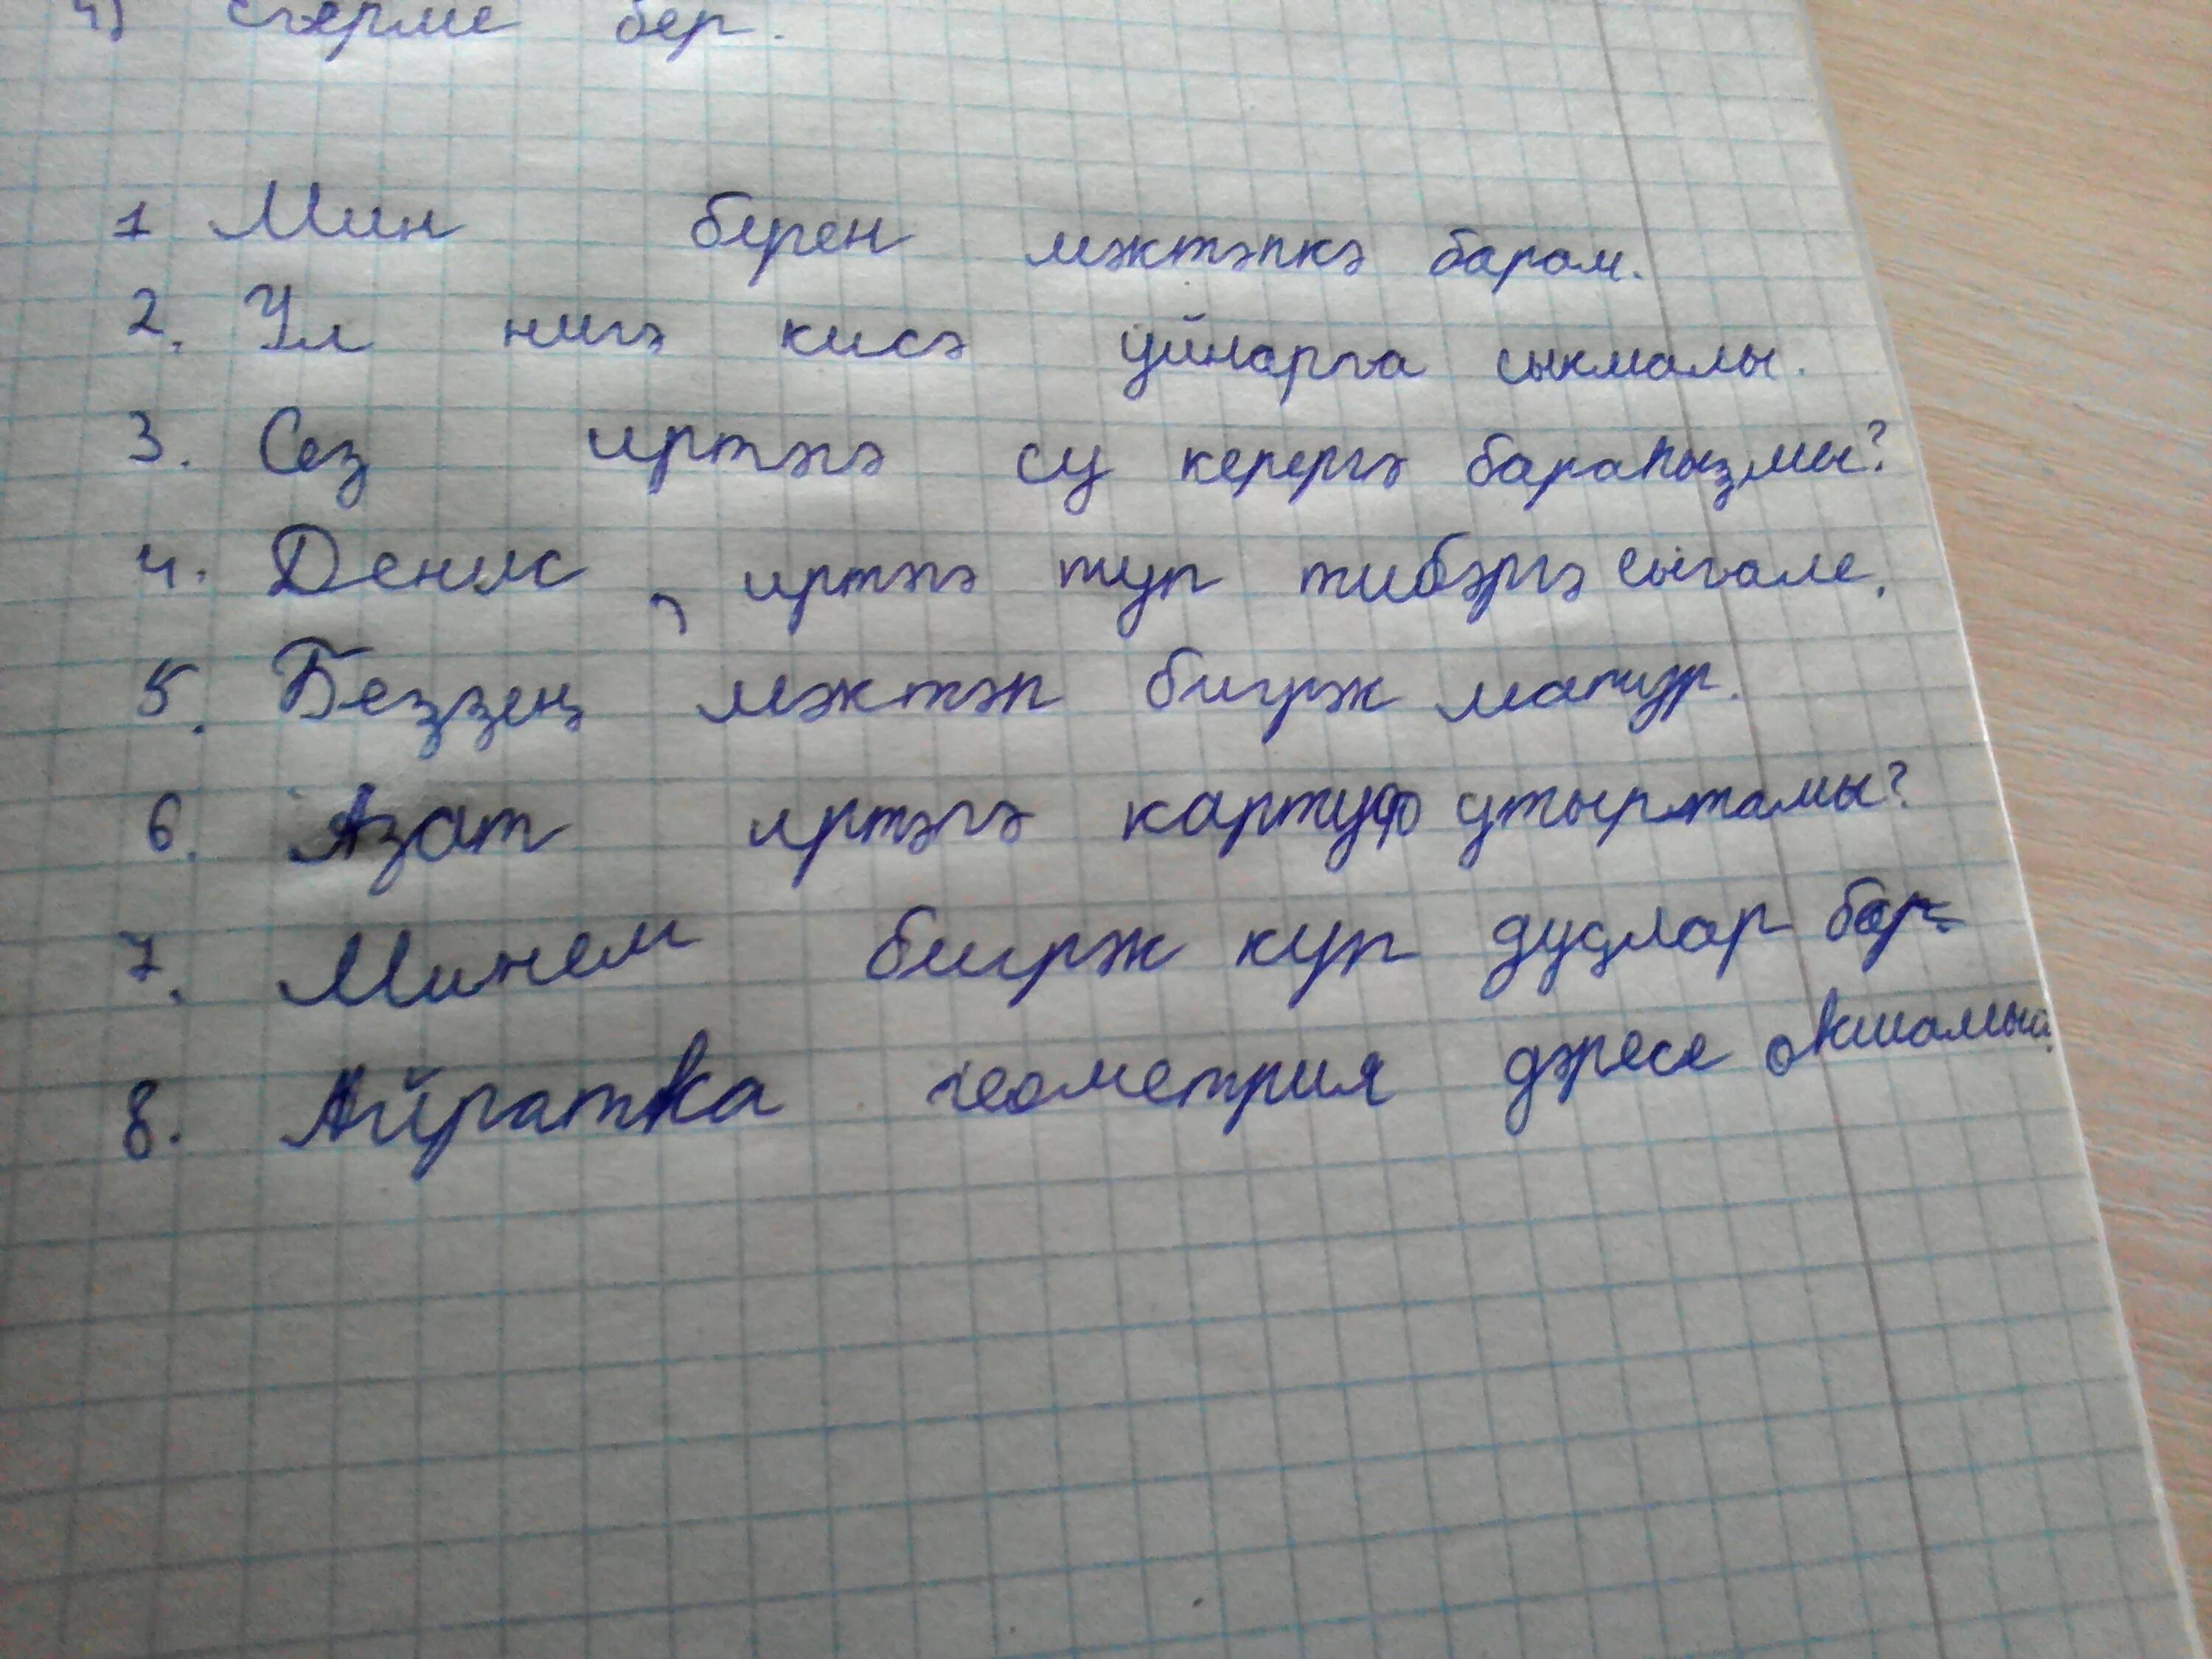 4) егерме бер.
1 Мин берен мәктәпкә барам.
2. Ул нигә кисә уйнарга сыкмалы.
3. Сез иртәгә су керергә бараһыҙмы?
4. Денис, иртәгә туп тибәргә сыгале.
5. Беҙҙең мәктәп бигрәк матур.
6. Азат иртәгә картуф утыртамы?
7. Минем бигрәк куп дуҫлар бар.
8. Айратка геометрия дәресе окшамый.